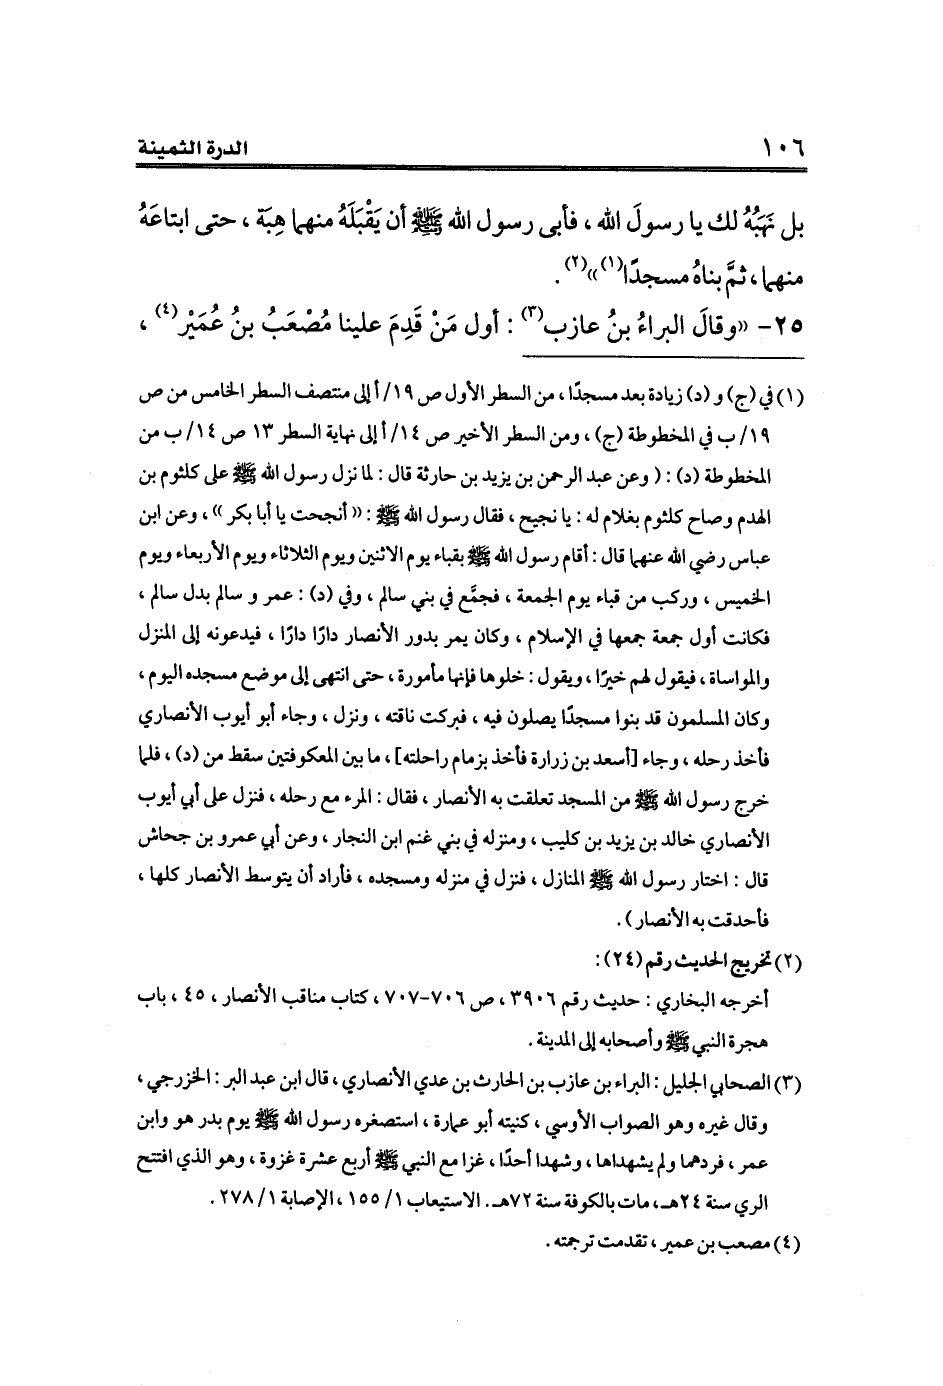 ١٠٦ الدرة الثمينة
بل نَهَبُهُ لك يا رسولَ الله ، فأبى رسول الله ﷺ أن يَقْبَلَهُ منهما هِبَة ، حتى ابتاعَهُ
منهما ، ثمَّ بناهُ مسجدًا(١)»(٢) .
٢٥- «وقالَ البراءُ بنُ عازب(٣) : أول مَنْ قَدِمَ علينا مُصْعَبُ بنُ عُمَيْر(٤) ،
(١) في (ج) و (د) زيادة بعد مسجدًا ، من السطر الأول ص ١٩/ أ إلى منتصف السطر الخامس من ص
١٩/ ب في المخطوطة (ج) ، ومن السطر الأخير ص ١٤/ أ إلى نهاية السطر ١٣ ص ١٤/ ب من
المخطوطة (د) : ( وعن عبد الرحمن بن يزيد بن حارثة قال : لما نزل رسول الله ﷺ على كلثوم بن
الهدم وصاح كلثوم بغلام له : يا نجيح ، فقال رسول الله ﷺ : « أنجحت يا أبا بكر » ، وعن ابن
عباس رضي الله عنهما قال : أقام رسول الله ﷺ بقباء يوم الاثنين ويوم الثلاثاء ويوم الأربعاء ويوم
الخميس ، وركب من قباء يوم الجمعة ، فجمَّع في بني سالم ، وفي (د) : عمر و سالم بدل سالم ،
فكانت أول جمعة جمعها في الإسلام ، وكان يمر بدور الأنصار دارًا دارًا ، فيدعونه إلى المنزل
والمواساة ، فيقول لهم خيرًا ، ويقول : خلوها فإنها مأمورة ، حتى انتهى إلى موضع مسجده اليوم ،
وكان المسلمون قد بنوا مسجدًا يصلون فيه ، فبركت ناقته ، ونزل ، وجاء أبو أيوب الأنصاري
فأخذ رحله ، وجاء [أسعد بن زرارة فأخذ بزمام راحلته] ، ما بين المعكوفتين سقط من (د) ، فلما
خرج رسول الله ﷺ من المسجد تعلقت به الأنصار ، فقال : المرء مع رحله ، فنزل على أبي أيوب
الأنصاري خالد بن يزيد بن كليب ، ومنزله في بني غنم ابن النجار ، وعن أبي عمرو بن جحاش
قال : اختار رسول الله ﷺ المنازل ، فنزل في منزله ومسجده ، فأراد أن يتوسط الأنصار كلها ،
فأحدقت به الأنصار ) .
(٢) تخريج الحديث رقم (٢٤) :
أخرجه البخاري : حديث رقم ٣٩٠٦ ، ص ٧٠٦-٧٠٧ ، كتاب مناقب الأنصار ، ٤٥ ، باب
هجرة النبي ﷺ وأصحابه إلى المدينة .
(٣) الصحابي الجليل : البراء بن عازب بن الحارث بن عدي الأنصاري ، قال ابن عبد البر : الخزرجي ،
وقال غيره وهو الصواب الأوسي ، كنيته أبو عمارة ، استصغره رسول الله ﷺ يوم بدر هو وابن
عمر ، فردهما ولم يشهداها ، وشهدا أحدًا ، غزا مع النبي ﷺ أربع عشرة غزوة ، وهو الذي افتتح
الري سنة ٢٤هـ ، مات بالكوفة سنة ٧٢هـ . الاستيعاب ١/ ١٥٥ ، الإصابة ١/ ٢٧٨ .
(٤) مصعب بن عمير ، تقدمت ترجمته .